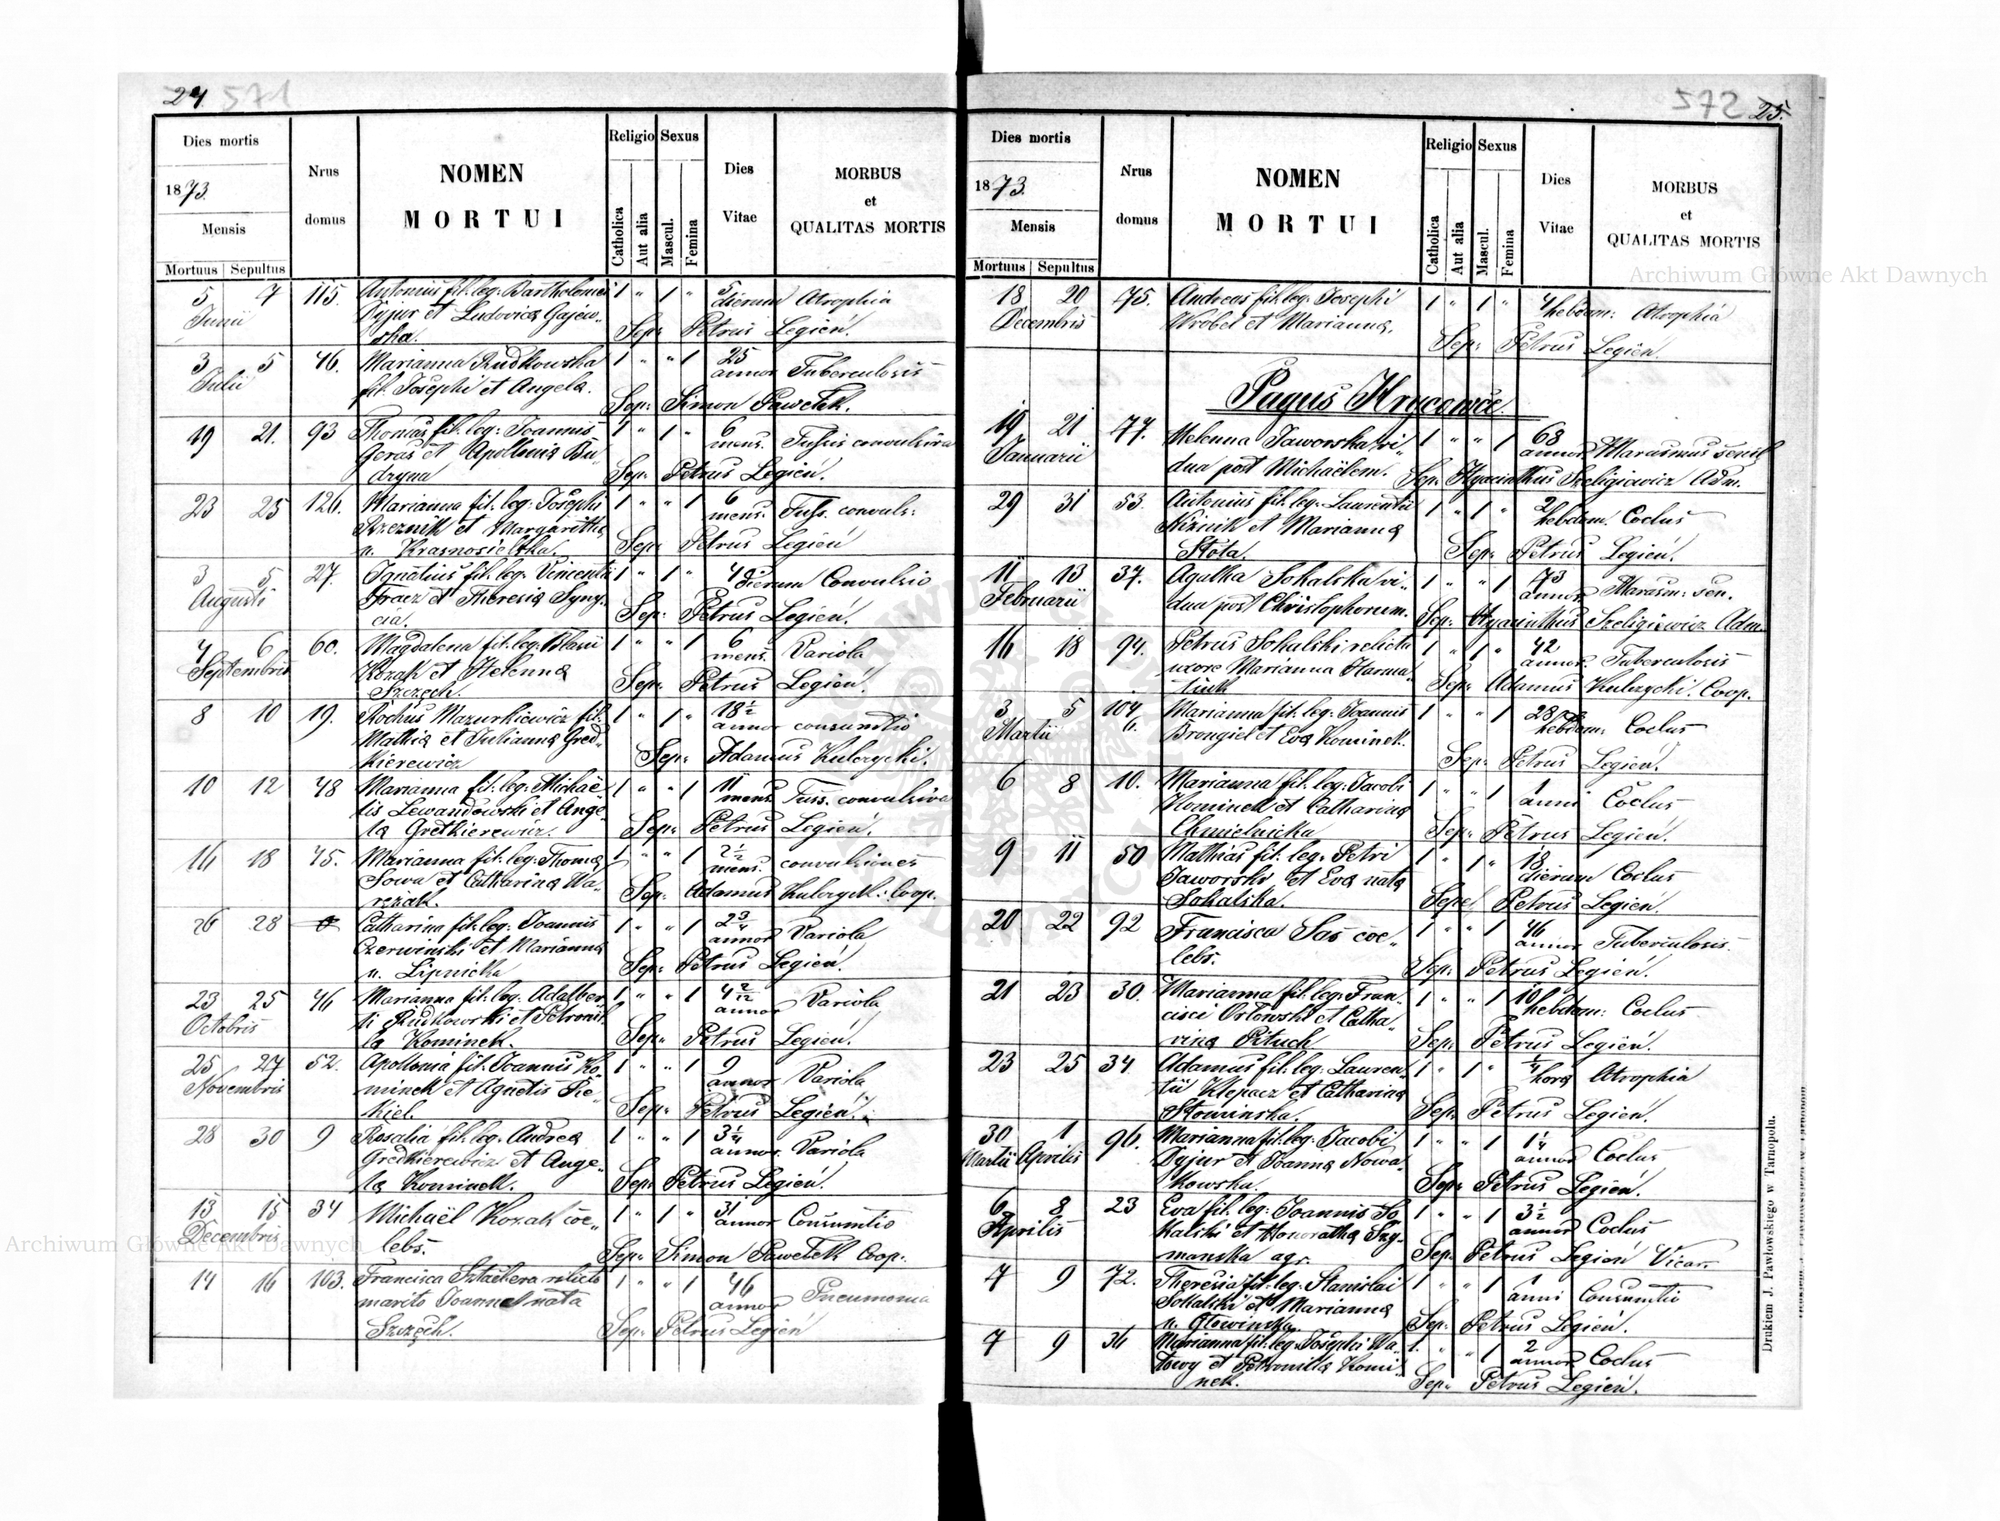 24. 571
Dies mortis
1873.
Mensis
Mortuus Sepultus
Nrus domus
NOMEN MORTUI
Religio
Catholica
Aut alia
Sexus
Mascul.
Femina
Dies Vitae
MORBUS et QUALITAS MORTIS
5 7 115. Antonius fil: leg: Bartholomei 1 " 1 " 5
Junii Dyjur et Ludovica Gajew- dierum Atrophia
ska. Sep: Petrus Legień.
3 5 46. Marianna Rudkowska 1 " " 1 25
Julii fil: Josephi et Angela. annor Tuberculosis
Sep: Simon Pawełek.
19 21. 93 Thomas fil: leg: Joannis 1 " 1 " 6
Geras et Apollonia Bu- mens. Tussis convulsiva
dryna Sep: Petrus Legień.
23 25 126. Marianna fil: leg: Josephi 1 " " 1 6
Rzeznik et Margaretha mens. Tuss. convuls:
n. Krasnosielska. Sep: Petrus Legień
3 5 27. Ignatius fil: leg: Vincentii 1 " 1 "
Augusti et Theresia Syny- dierum Convulsio
cia. Sep: Petrus Legień.
4 6 60. Magdalena fil: leg: Blasii 1 " " 1 6
Septembris Kozak et Helenna mens. Variola
Szczęch. Sep: Petrus Legień.
8 10 19. Rochus Mazurkiewicz fil: 1 " 1 " 18½
Mathia et Julianna Gred- annor consumtio
kierewicz Sep: Adamus Kulczycki.
10 12 48 Marianna fil: leg: Michaë- 1 " " 1 11
lis Lewandowski et Ange- mens. Tuss. convulsiva
la Gretkierewicz. Sep: Petrus Legień.
16 18 45. Marianna fil: leg: Thoma 1 " " 1 2½
Sowa et Catharina Wa- mens. convulsiones
rezak. Sep: Adamus Kulczycki: Coop.
26 28 Catharina fil: leg: Joannis 1 " " 1 2¾
Czerwinski et Marianna annor Variola
n. Lipnicka Sep: Petrus Legień.
23 25 46 Marianna fil: leg: Adalber- 1 " " 1 4 2/12
Octobris ti Rudkowski et Petronil- annor Variola
la Kominek. Sep: Petrus Legień.
25 27 52. Apollonia fil: Joannis Ko- 1 " " 1 9
Novembris minek et Agnetis Pie- annor Variola
kiel. Sep: Petrus Legień.
28 30 9 Rosalia fil: leg: Andrea 1 " " 1 3¼
Gredkierewicz et Ange- annor. Variola
la Kominek. Sep: Petrus Legień.
13 15 34 Michaël Kozak coe- 1 " 1 " 31
Decembris lebs. annor Consumtio
Sep: Simon Pawełek Coop.
14 16 103. Francisca Sztachera relicto 1 " " 1 46
marito Joanne nata annor Pneumonia
Szczęch. Sep: Petrus Legień
572 25.
Dies mortis
1873.
Mensis
Mortuus Sepultus
Nrus domus
NOMEN MORTUI
Religio
Catholica
Aut alia
Sexus
Mascul.
Femina
Dies Vitae
MORBUS et QUALITAS MORTIS
18 20 75. Andreas fil: leg: Josephi 1 " 1 " 4
Decembris Wrobel et Marianna. hebdom: Atrophia
Sep: Petrus Legień.
Pagus Hrycowce
19 21 77. Helenna Jaworska vi- 1 " " 1 68
Januarii dua post Michaëlem. annor Marasmus senil
Sep: Hyacinthus Szeligiewicz Adm.
29 31 53. Antonius fil: leg: Laurentii 1 " 1 " 2
Niznik et Marianna hebdom. Coclus
Stota. Sep: Petrus Legień.
11 13 37. Agatha Sokalska vi- 1 " " 1 73
Februarii dua post Christophorum. annor Marasm: sen.
Sep: Hyacinthus Szeligiewicz Adm.
16 18 94. Petrus Sokalski relicta 1 " 1 " 42
uxore Marianna Harma- annor. Tuberculosis
tiuk Sep: Adamus Kulczycki. Coop.
3 5 104 Marianna fil: leg: Joannis 1 " " 1 28
Martii Brongiel et Eva Kominek. hebdom: Coclus
Sep: Petrus Legień.
6 8 10. Marianna fil: leg: Jacobi 1 " " 1 1
Kominek et Catharina anni Coclus
Chmielnicka Sep: Petrus Legień.
9 11 50 Mathias fil: leg: Petri 1 " 1 " 18
Jaworski et Eva nata dierum Coclus
Sokalska. Sepel Petrus Legień.
20 22 92 Francisca Sas coe- 1 " " 1 46
lebs. annor Tuberculosis.
Sep: Petrus Legień.
21 23 30. Marianna fil: leg: Fran- 1 " " 1 10
cisci Ostowski et Catha- hebdom: Coclus
rina Pituch Sep: Petrus Legień.
23 25 34 Adamus fil: leg: Lauren- 1 " 1 " ¼
tii Klepacz et Catharina hora Atrophia
Stowinska. Sep: Petrus Legień.
30 1 96. Marianna fil: leg: Jacobi 1 " " 1 1¼
Martii Aprilis Dyjur et Joanna Nowa- annor Coclus
kowska. Sep: Petrus Legień.
6 8 23 Eva fil: leg: Joannis So- 1 " " 1 3½
Aprilis kalski et Honoratha Szy- annor Coclus
manska agr. Sep: Petrus Legień Vicar.
7 9 72. Theresia fil: leg: Stanislai 1 " " 1 1
Sokalski et Marianna anni Consumtio
n. Głowinska Sep: Petrus Legień.
7 9 36 Marianna fil: leg: Josephi Wa- 1 " " 1 2
towy et Petronilla Komi- annor. Coclus
nek. Sep: Petrus Legień.
Drukiem J. Pawłowskiego w Tarnopolu.
Archiwum Główne Akt Dawnych
Archiwum Główne Akt Dawnych